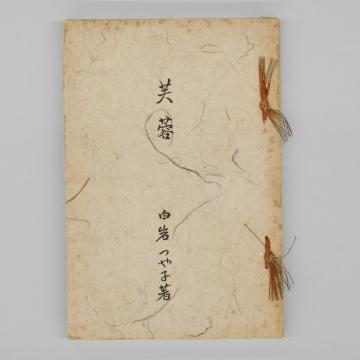 芙蓉
白岩つや子著